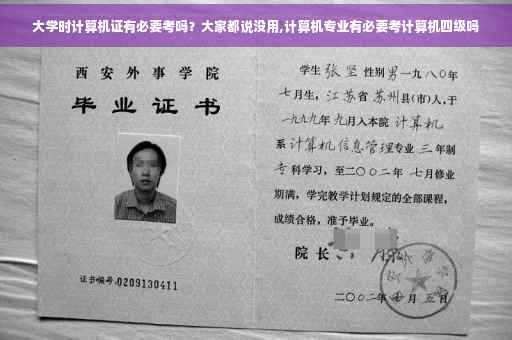 大学时计算机证有必要考吗？大家都说没用,计算机专业有必要考计算机四级吗
西安外事学院
毕业证书
证书编号:0209130411
学生 张坚 性别 男 一九八〇年
七月生，江苏省 苏州县(市)人,于
一九九九年 九月入本院 计算机
系 计算机信息管理专业 三 年制
专 科学习，至二〇〇二年 七月修业
期满，学完教学计划规定的全部课程，
成绩合格，准予毕业。
院长
二〇〇二年 七月 五日